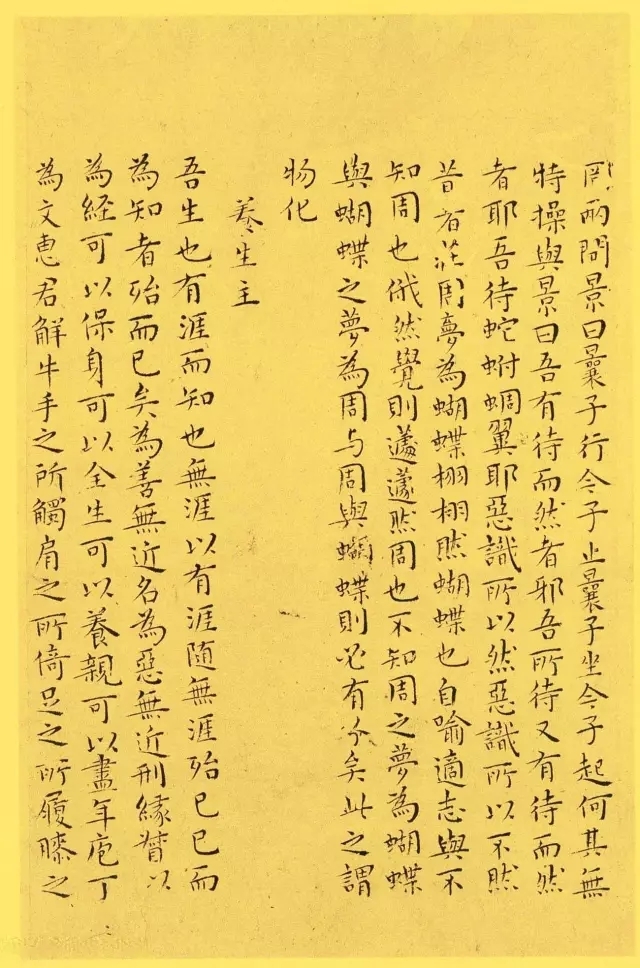 罔兩問景曰曩子行今子止曩子坐今子起何其無
特操與景曰吾有待而然者邪吾所待又有待而然
者耶吾待蛇蚹蜩翼耶惡識所以然惡識所以不然
昔者莊周夢為蝴蝶栩栩然蝴蝶也自喻適志與不
知周也俄然覺則蘧蘧然周也不知周之夢為蝴蝶
與蝴蝶之夢為周与周與蝴蝶則必有分矣此之謂
物化
養生主
吾生也有涯而知也無涯以有涯隨無涯殆已已而
為知者殆而已矣為善無近名為惡無近刑緣督以
為経可以保身可以全生可以養親可以盡年庖丁
為文惠君解牛手之所觸肩之所倚足之所履膝之